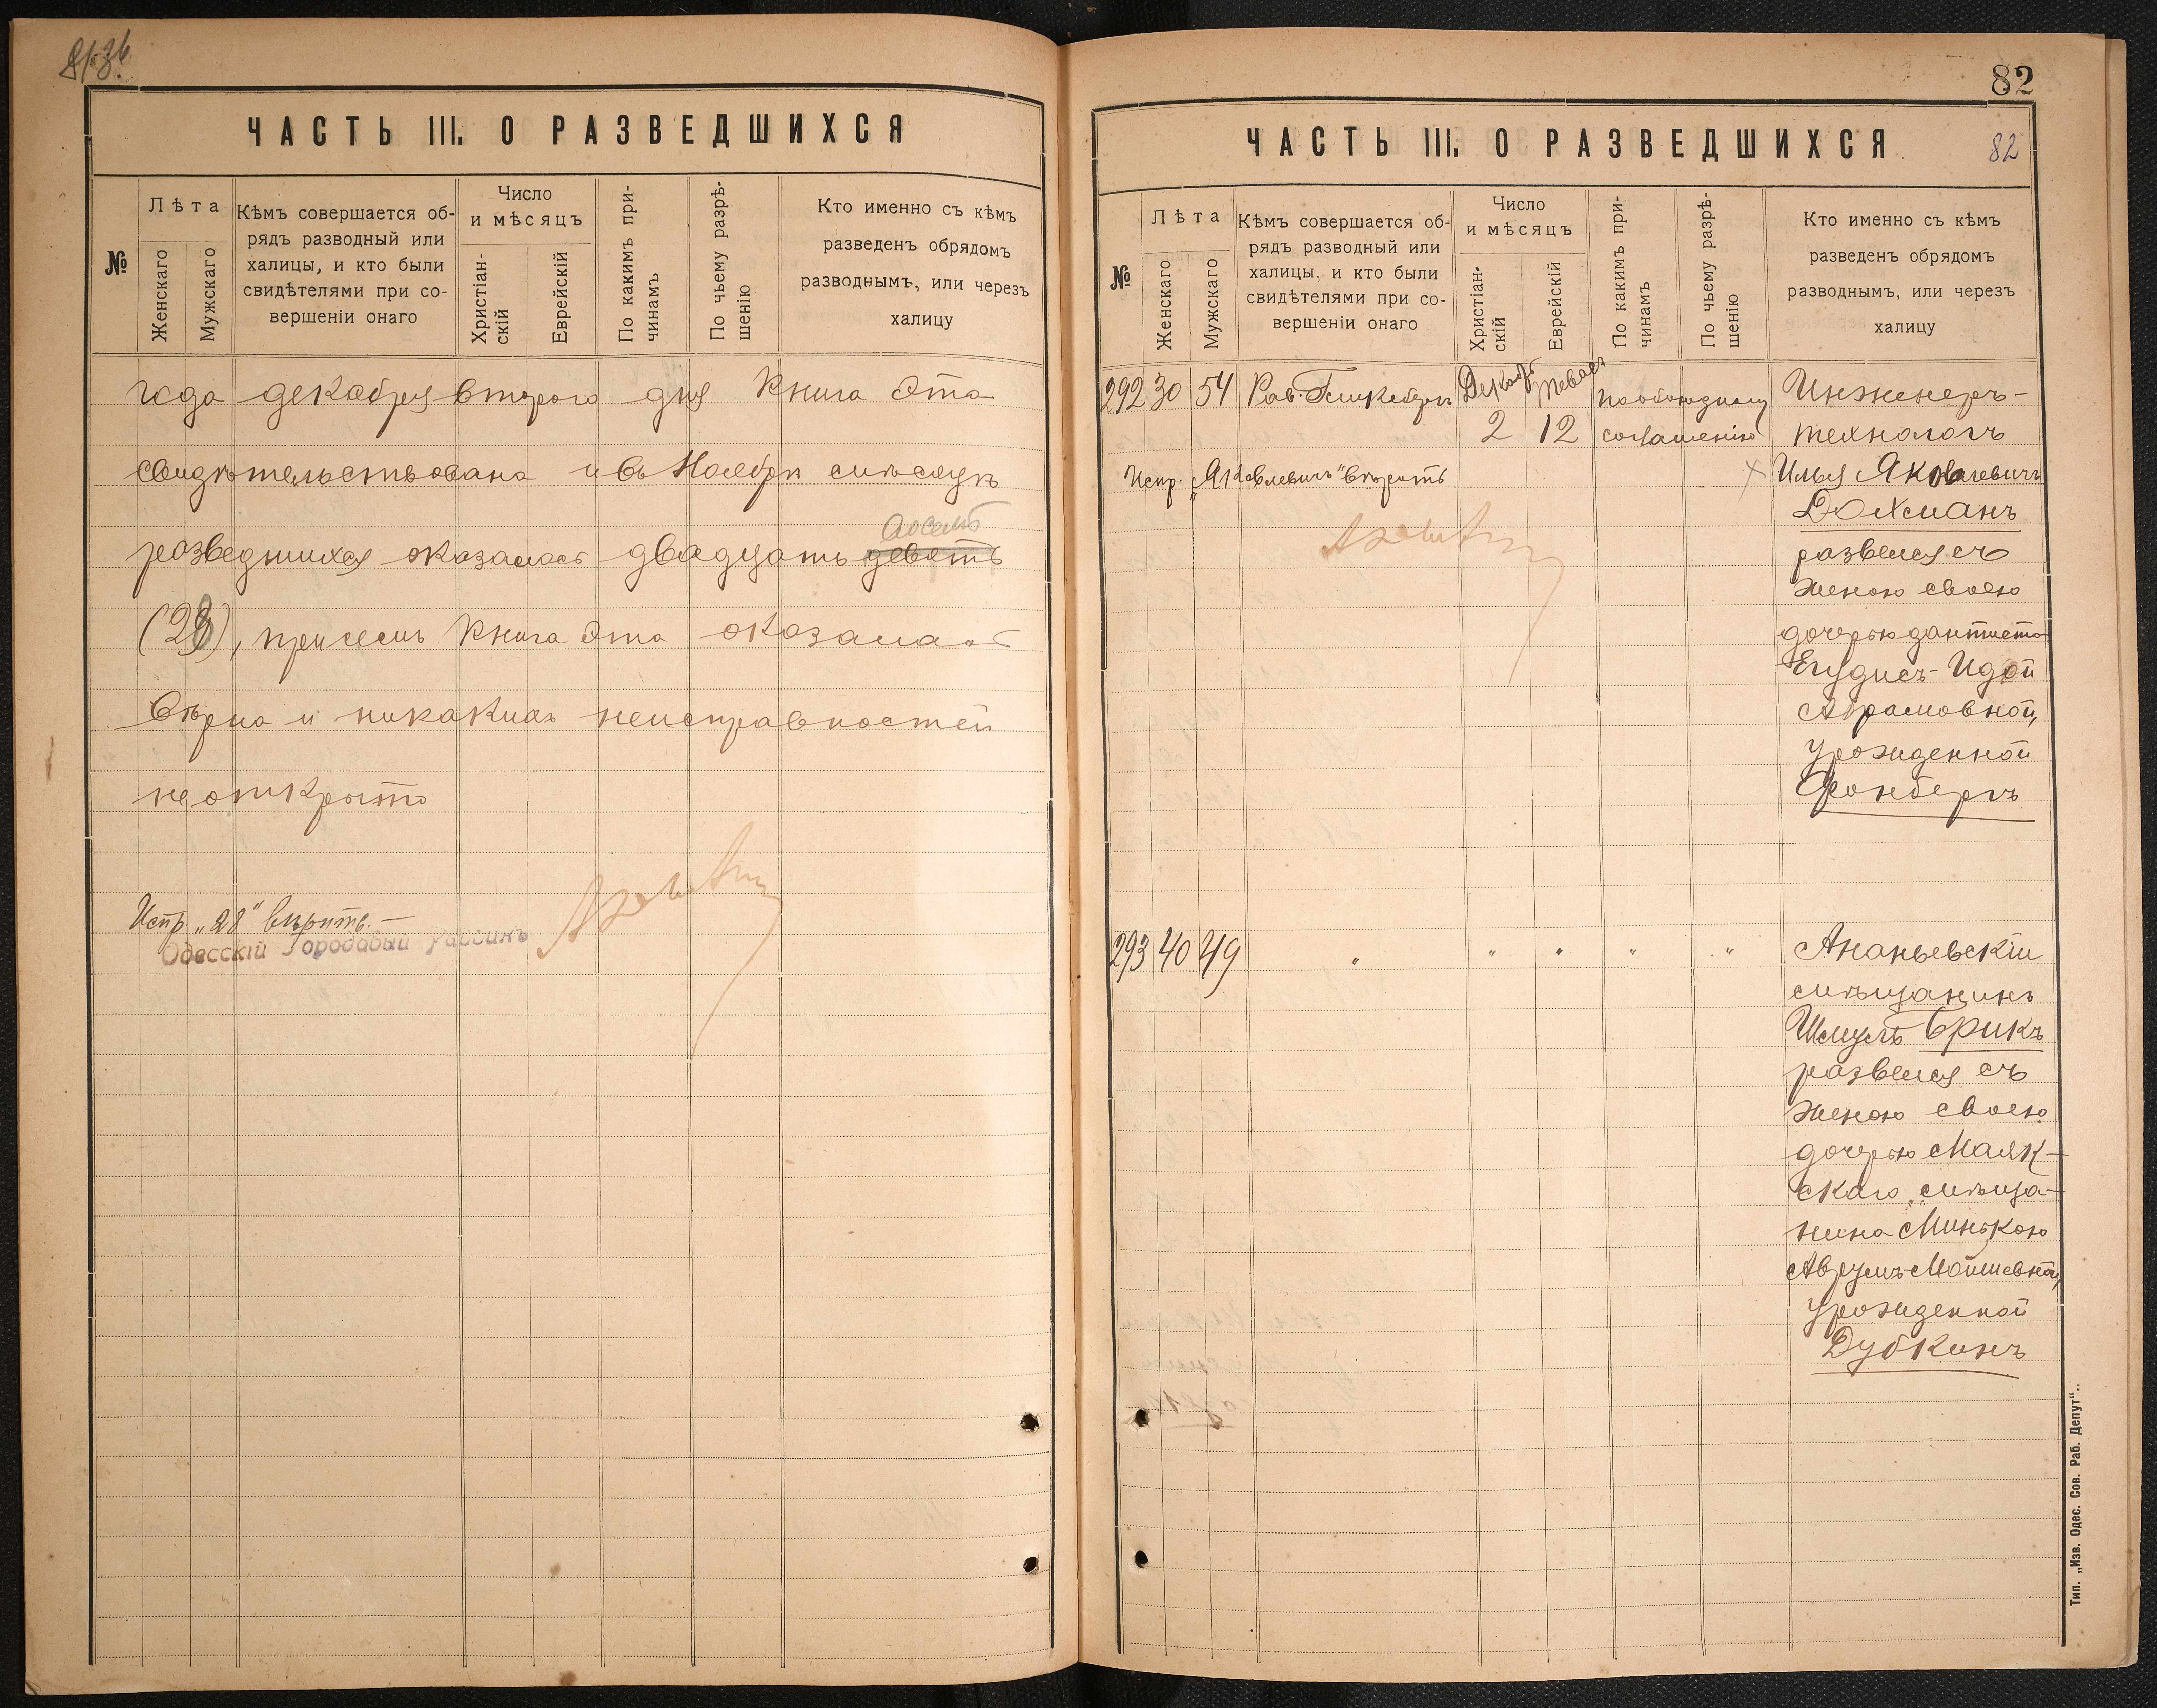 ЧАСТЬ III. О РАЗВЕДШИХСЯ
№
Лѣта
Женскаго
Мужскаго
Кѣмъ совершается об-
рядъ разводный или
халицы, и кто были
свидѣтелями при со-
вершеніи онаго
Число
и мѣсяцъ
Христіан-
скій
Еврейскій
По какимъ при-
чинамъ
По чьему разрѣ-
шенію
Кто именно съ кѣмъ
разведенъ обрядомъ
разводнымъ, или черезъ
халицу
года декабря второго дня Книга эта
свидѣтельствована и въ Ноябрѣ мѣсяцѣ
восемь
разведшихся оказалось двадцать девять
(28), причемъ Книга эта оказалась
вѣрна и никакихъ неисправностей
не открыто
Испр. „28" вѣрить.—
Одесскій Городовый Раввинъ
82
ЧАСТЬ III. О РАЗВЕДШИХСЯ
82
№
Лѣта
Женскаго
Мужскаго
Кѣмъ совершается об-
рядъ разводный или
халицы, и кто были
свидѣтелями при со-
вершеніи онаго
Число
и мѣсяцъ
Христіан-
скій
Еврейскій
По какимъ при-
чинамъ
По чьему разрѣ-
шенію
Кто именно съ кѣмъ
разведенъ обрядомъ
разводнымъ, или черезъ
халицу
292 30 54 Рав. Декабр Тевася По обоюдному Инженеръ-
2 12 соглашенію технологъ
Испр. „Яковлевичъ" вѣрить
Илья Яковлевичъ
Дохманъ
развелся съ
женою своею
дочерью дантиста
Егудисъ-Идой
Абрамовной,
урожденной
Фонбергъ
293 40 49 " " " " " Ананьевскій
мѣщанинъ
Шмуль Брикъ
развелся съ
женою своею
дочерью Маяк-
скаго мѣща-
нина Минькою
Аврумъ-Мошевной,
урожденной
Дубкинъ
Тип. „Изв. Одес. Сов. Раб. Депут"..